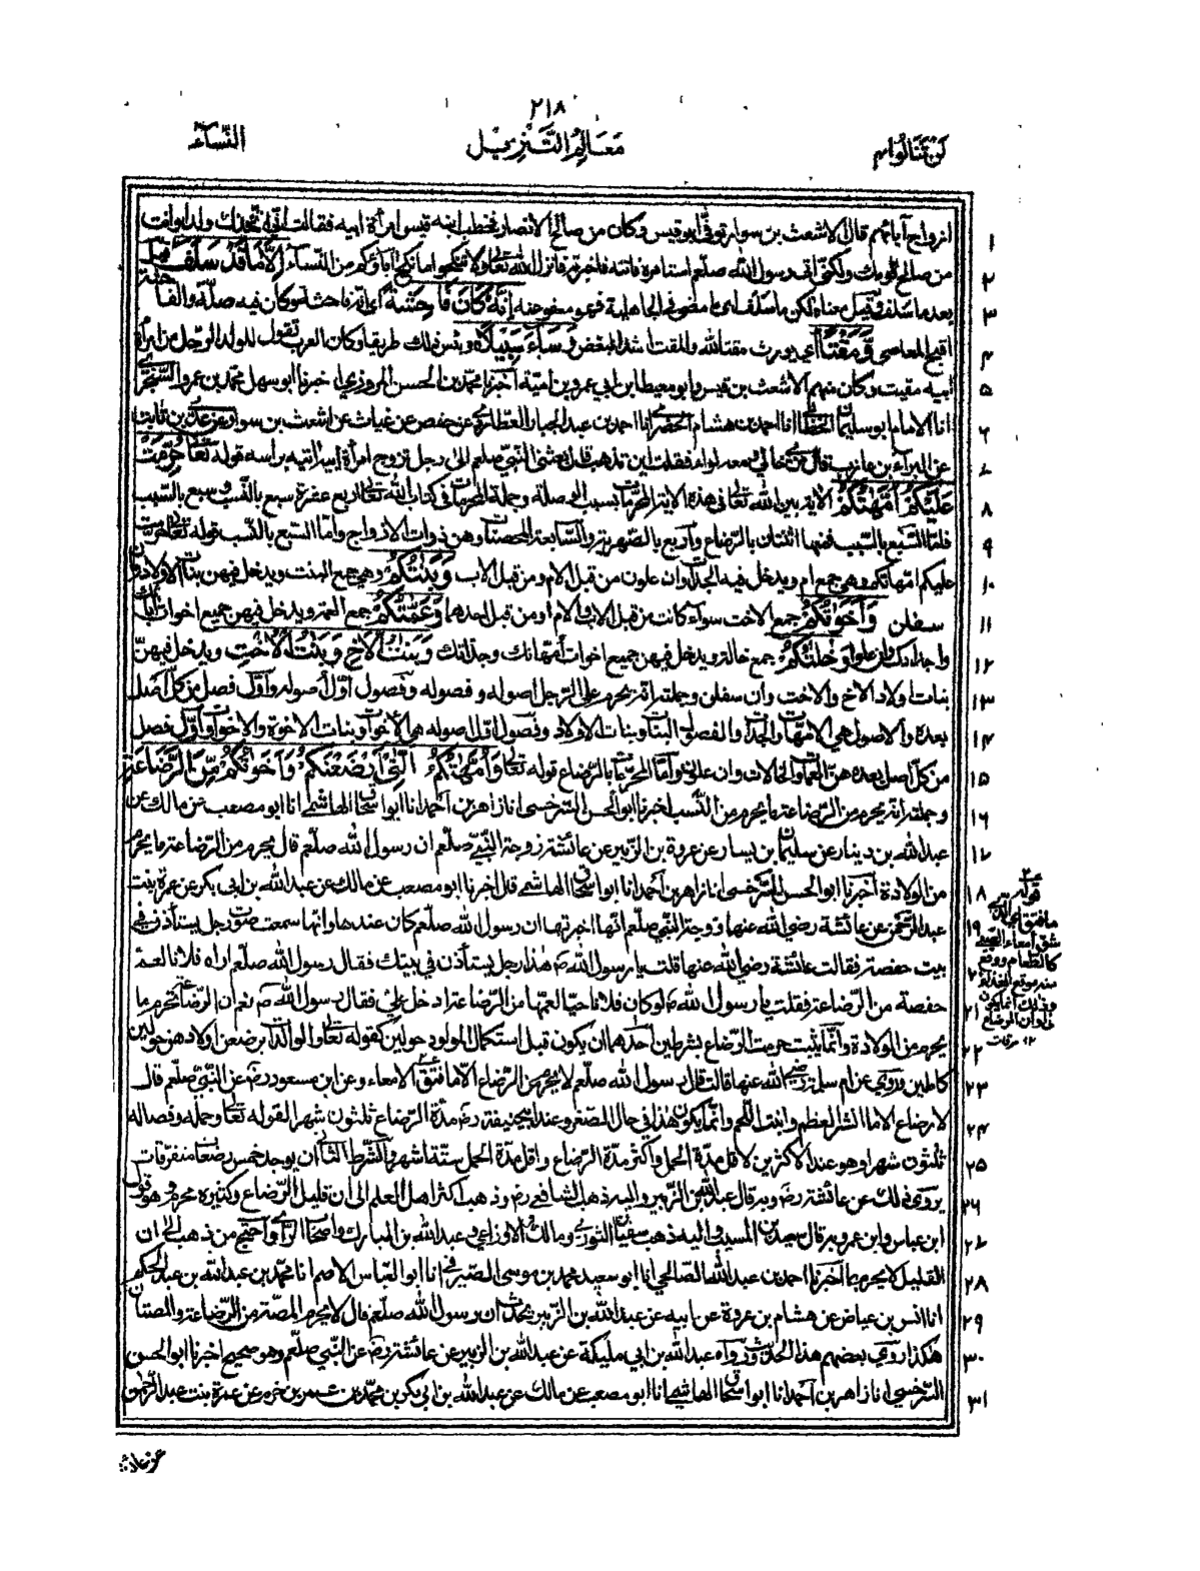 ٢١٨
لن تنالوا ٤ معالم التنزيل النسآء
ازواج آبائهم قال الاشعث بن سوار توفى ابو قيس وكان من صالح الانصار فخطب ابنه قيس امرأة ابيه فقالت انى اتخذك ولدا وانت
من صالحى قومك ولكنى آتى رسول الله صلعم استأمره فاتته فاخبرته فانزل الله تعالى ولا تنكحوا ما نكح آباؤكم من النساء الا ما قد سلف قيل
بعد ما سلف وقيل معناه لكن ما سلف اى ما مضى فى الجاهلية فهو معفو عنه انه كان فاحشة اى انه فاحشة وكان فيه صلة والفاحشة
اقبح المعاصى ومقتا اى يورث مقت الله والمقت اشد البغض وساء سبيلا وبئس ذلك طريقا وكان العرب تقول للولد الرجل من امرأة
ابيه مقيت وكان منهم الاشعث بن قيس وابو معيط ابن ابى عمرو بن امية اخبرنا محمد بن الحسن المروزى اخبرنا ابو سهل محمد بن عمرو السجزى
انا الامام ابو سليمان الخطابى انا احمد بن هشام الحضرمى انا احمد بن عبد الجبار العطاردى عن حفص بن غياث عن اشعث بن سوار عن عدى بن ثابت
عن البراء بن عازب قال مر بى خالى ومعه لواء فقلت اين تذهب قال بعثنى النبى صلعم الى رجل تزوج امرأة ابيه اتيه برأسه قوله تعالى حرمت
عليكم امهاتكم الاية بين الله تعالى فى هذه الاية المحرمات بسبب الوصلة وجملة المحرمات فى كتاب الله تعالى اربع عشرة سبع بالنسب وسبع بالسبب
فاما السبع بالسبب فمنها اثنتان بالرضاع واربع بالصهرية والسابعة المحصنات وهن ذوات الازواج واما السبع بالنسب قوله تعالى حرمت
عليكم امهاتكم وهى جمع ام ويدخل فيه الجدات وان علون من قبل الام ومن قبل الاب وبنتكم وهى جمع البنت ويدخل فيهن بنات الاولاد وان
سفلن واخوتكم جمع الاخت سواء كانت من قبل الاب والام او من قبل احدهما وعمتكم جمع العمة ويدخل فيهن جميع اخوات آبائك
واجدادك وان علوا وخلتكم جمع خالة ويدخل فيهن جميع اخوات امهاتك وجداتك وبنت الاخ وبنت الاخت ويدخل فيهن
بنات اولاد الاخ والاخت وان سفلن وجملته انه يحرم على الرجل اصوله وفصوله وفصول اول اصوله واول فصل من كل اصل
بعده والاصول هى الامهات والجدات والفصول البنات وبنات الاولاد وفصول اول اصوله هى الاخوات وبنات الاخوة والاخوات واول فصل
من كل اصل بعده هن العمات والخالات وان علون واما المحرمات بالرضاع قوله تعالى وامهتكم التى ارضعنكم واخوتكم من الرضاعة
وجملته انه يحرم من الرضاعة ما يحرم من النسب اخبرنا ابو الحسن السرخسى انا زاهر بن احمد انا ابو اسحاق الهاشمى انا ابو مصعب عن مالك عن
عبد الله بن دينار عن سليمان بن يسار عن عروة بن الزبير عن عائشة زوجة النبى صلعم ان رسول الله صلعم قال يحرم من الرضاعة ما يحرم
من الولادة اخبرنا ابو الحسن السرخسى انا زاهر بن احمد انا ابو اسحاق الهاشمى قال اخبرنا ابو مصعب عن مالك عن عبد الله بن ابى بكر عن عمرة بنت
عبد الرحمن عن عائشة رضى الله عنها زوجة النبى صلعم انها اخبرتها ان رسول الله صلعم كان عندها وانها سمعت صوت رجل يستأذن فى
بيت حفصة فقالت عائشة رضى الله عنها قلت يا رسول الله ص هذا رجل يستأذن فى بيتك فقال رسول الله صلعم اراه فلانا لعم
حفصة من الرضاعة فقلت يا رسول الله ص لو كان فلانا حيا لعمها من الرضاعة ادخل على فقال رسول الله ص نعم ان الرضاعة تحرم ما
يحرم من الولادة وانما يثبت حرمت الرضاع بشرطين احدهما ان يكون قبل استكمال المولود حولين كقوله تعالى والوالدات يرضعن اولادهن حولين
كاملين وروى عن ام سلمة رضى الله عنها قالت قال رسول الله صلعم لا يحرم من الرضاع الا ما فتق الامعاء وعن ابن مسعود رض عن النبى صلعم قال
لا رضاع الا ما انشز العظم وانبت اللحم وانما يكون هذا فى حال الصغر وعند ابى حنيفة رح مدة الرضاع ثلثون شهرا لقوله تعالى وحمله وفصاله
ثلثون شهرا وهو عند الاكثرين لاقل مدة الحمل واكثر مدة الرضاع واقل مدة الحمل ستة اشهر والشرط الثانى ان يوجد خمس رضعات متفرقات
يروى ذلك عن عائشة رض وبه قال عبد الله بن الزبير واليه ذهب الشافعى رح وذهب اكثر اهل العلم الى ان قليل الرضاع وكثيره محرم وهو قول
ابن عباس وابن عمر وبه قال سعيد بن المسيب واليه ذهب سفيان الثورى ومالك والاوزاعى وعبد الله بن المبارك واصحاب الرأى واحتج من ذهب الى ان
القليل لا يحرم بما اخبرنا احمد بن عبد الله الصالحى انا ابو سعيد محمد بن موسى الصيرفى انا ابو العباس الاصم انا محمد بن عبد الله بن عبد الحكم
انا انس بن عياض عن هشام بن عروة عن ابيه عن عبد الله بن الزبير يحدث ان رسول الله صلعم قال لا يحرم المصة من الرضاعة والمصتان
هكذا روى بعضهم هذا الحديث ورواه عبد الله بن ابى مليكة عن عبد الله بن الزبير عن عائشة رض عن النبى صلعم وهو صحيح اخبرنا ابو الحسن
السرخسى انا زاهر بن احمد انا ابو اسحاق الهاشمى انا ابو مصعب عن مالك عن عبد الله بن ابى بكر بن محمد بن عمرو بن حزم عن عمرة بنت عبد الرحمن
١
٢
٣
٤
٥
٦
٧
٨
٩
١٠
١١
١٢
١٣
١٤
١٥
١٦
١٧
١٨
١٩
٢٠
٢١
٢٢
٢٣
٢٤
٢٥
٢٦
٢٧
٢٨
٢٩
٣٠
٣١
قوله
ما فتق اى الذى
شق امعاء الصبى
كالطعام ووقع
منه موقع الغذاء
وذلك انما يكون
فى اوان الرضاع
١٢ مرقات
عن عائشة